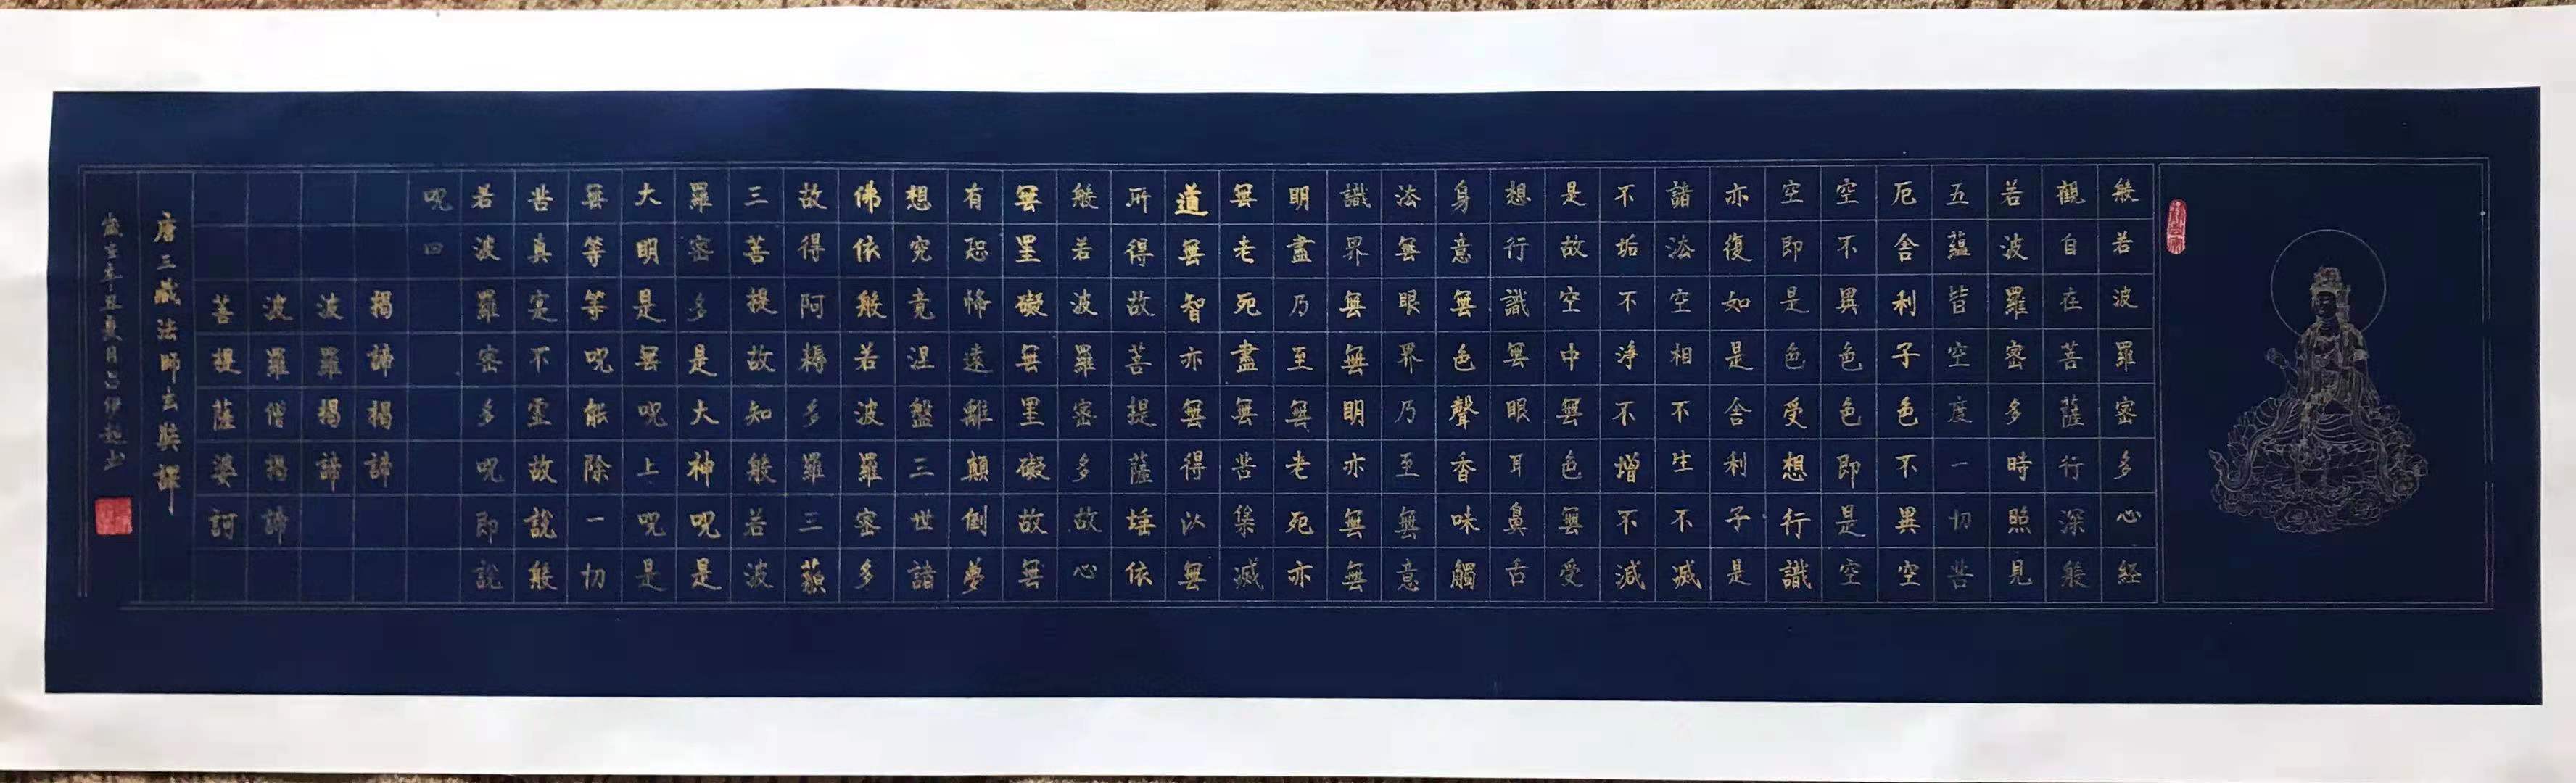 般若波羅密多心経
觀自在菩薩行深般
若波羅密多時照見
五蘊皆空度一切苦
厄舍利子色不異空
空不異色色即是空
空即是色受想行識
亦復如是舍利子是
諸法空相不生不滅
不垢不淨不增不減
是故空中無色無受
想行識無眼耳鼻舌
身意無色聲香味觸
法無眼界乃至無意
識界無無明亦無無
明盡乃至無老死亦
無老死盡無苦集滅
道無智亦無得以無
所得故菩提薩埵依
般若波羅密多故心
無罣礙無罣礙故無
有恐怖遠離顛倒夢
想究竟涅盤三世諸
佛依般若波羅密多
故得阿耨多羅三藐
三菩提故知般若波
羅密多是大神呪是
大明是無呪上呪是
無等等呪能除一切
苦真寔不霊故說般
若波羅密多呪即說
呪曰
揭諦揭諦
波羅揭諦
波羅僧揭諦
菩提薩婆訶
唐三藏法師玄奘譯
歲在辛丑夏月